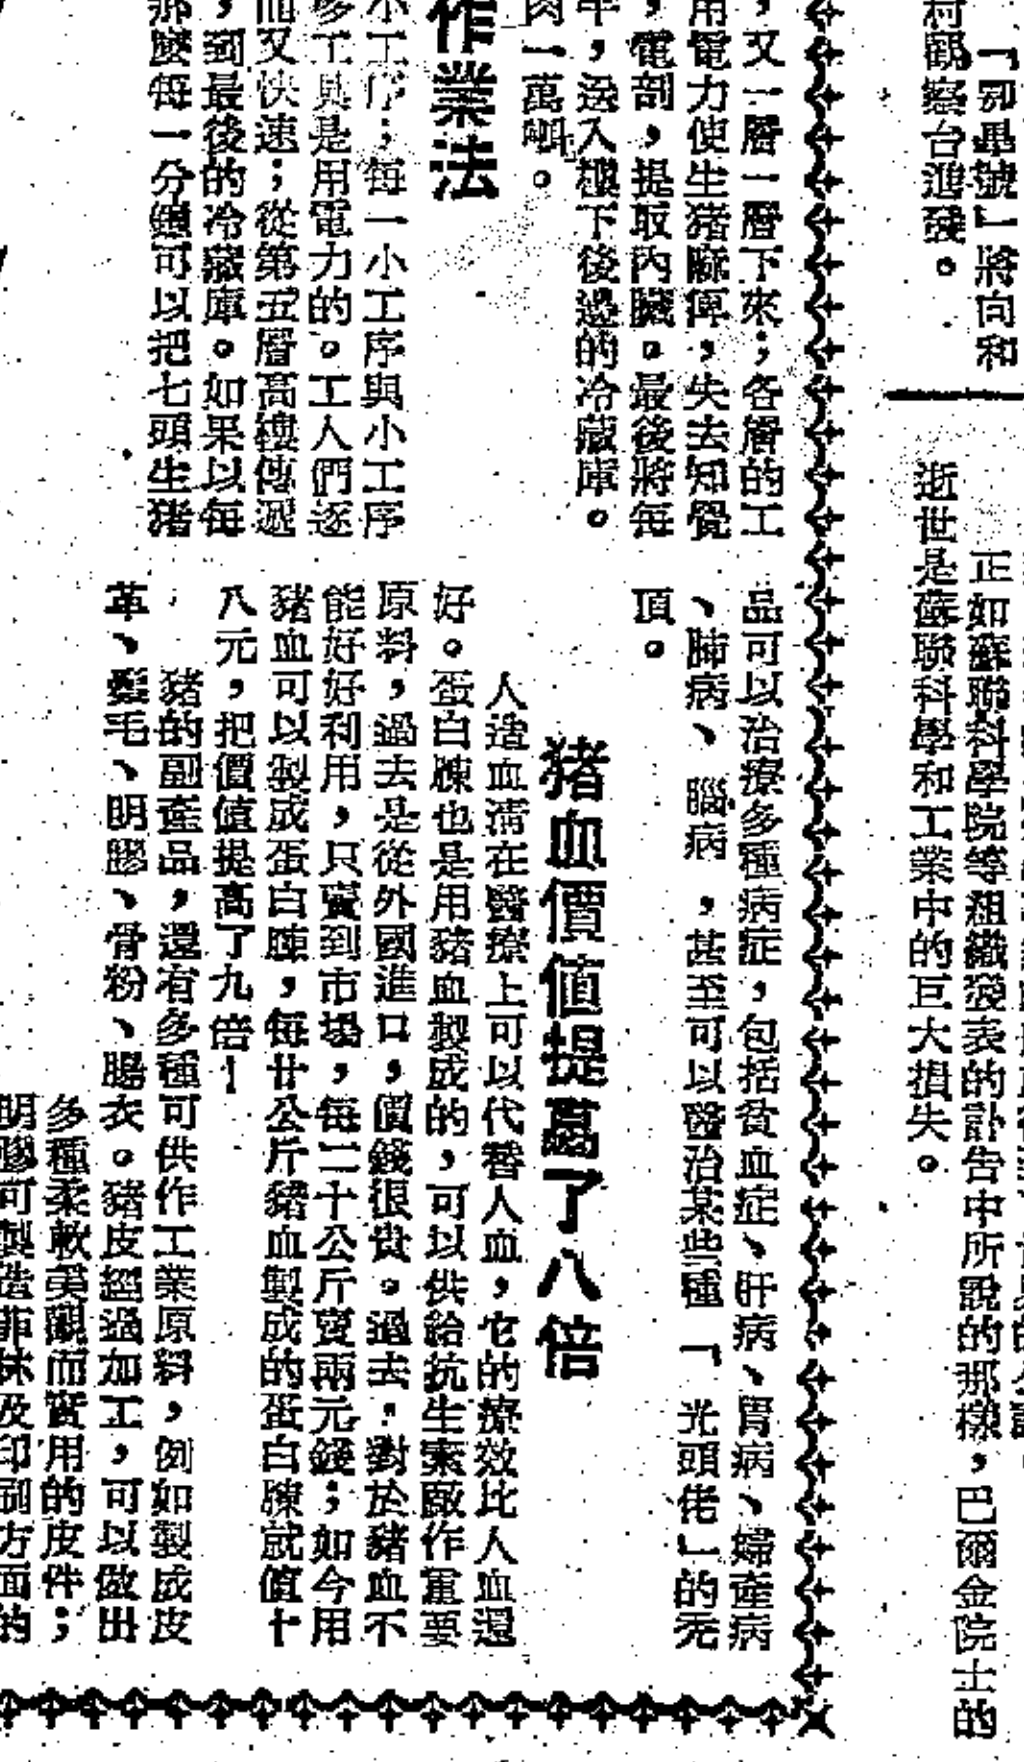 「勿畢號」將向和
村觀察台進發。
正如蘇聯科學院等組織發表的訃告中所說的那樣，巴爾金院士的
逝世是蘇聯科學和工業中的巨大損失。
，又一層一層下來；各層的工
用電力使生猪麻痺，失去知覺
，電剖，提取內臟。最後將每
半，送入樓下後邊的冷藏庫。
肉一萬噸。
作業法
小工序；每一小工序與小工序
多工具是用電力的。工人們逐
而又快速；從第五層高樓傳遞
，到最後的冷藏庫。如果以每
那麼每一分鐘可以把七頭生猪
品可以治療多種病症，包括貧血症、肝病、胃病、婦產病
、肺病、腦病，甚至可以醫治某些種「光頭佬」的禿
頂。
猪血價值提高了八倍
人造血清在醫療上可以代替人血，它的療效比人血還
好。蛋白腖也是用豬血製成的，可以供給抗生素廠作重要
原料，過去是從外國進口，價錢很貴。過去，對於豬血不
能好好利用，只賣到市場，每二十公斤賣兩元錢；如今用
豬血可以製成蛋白腖，每廿公斤豬血製成的蛋白腖就值十
八元，把價值提高了九倍！
豬的副產品，還有多種可供作工業原料，例如製成皮
革、髮毛、明膠、骨粉、腸衣。豬皮經過加工，可以做出
多種柔軟美觀而實用的皮件；
明膠可製造菲林及印刷方面的